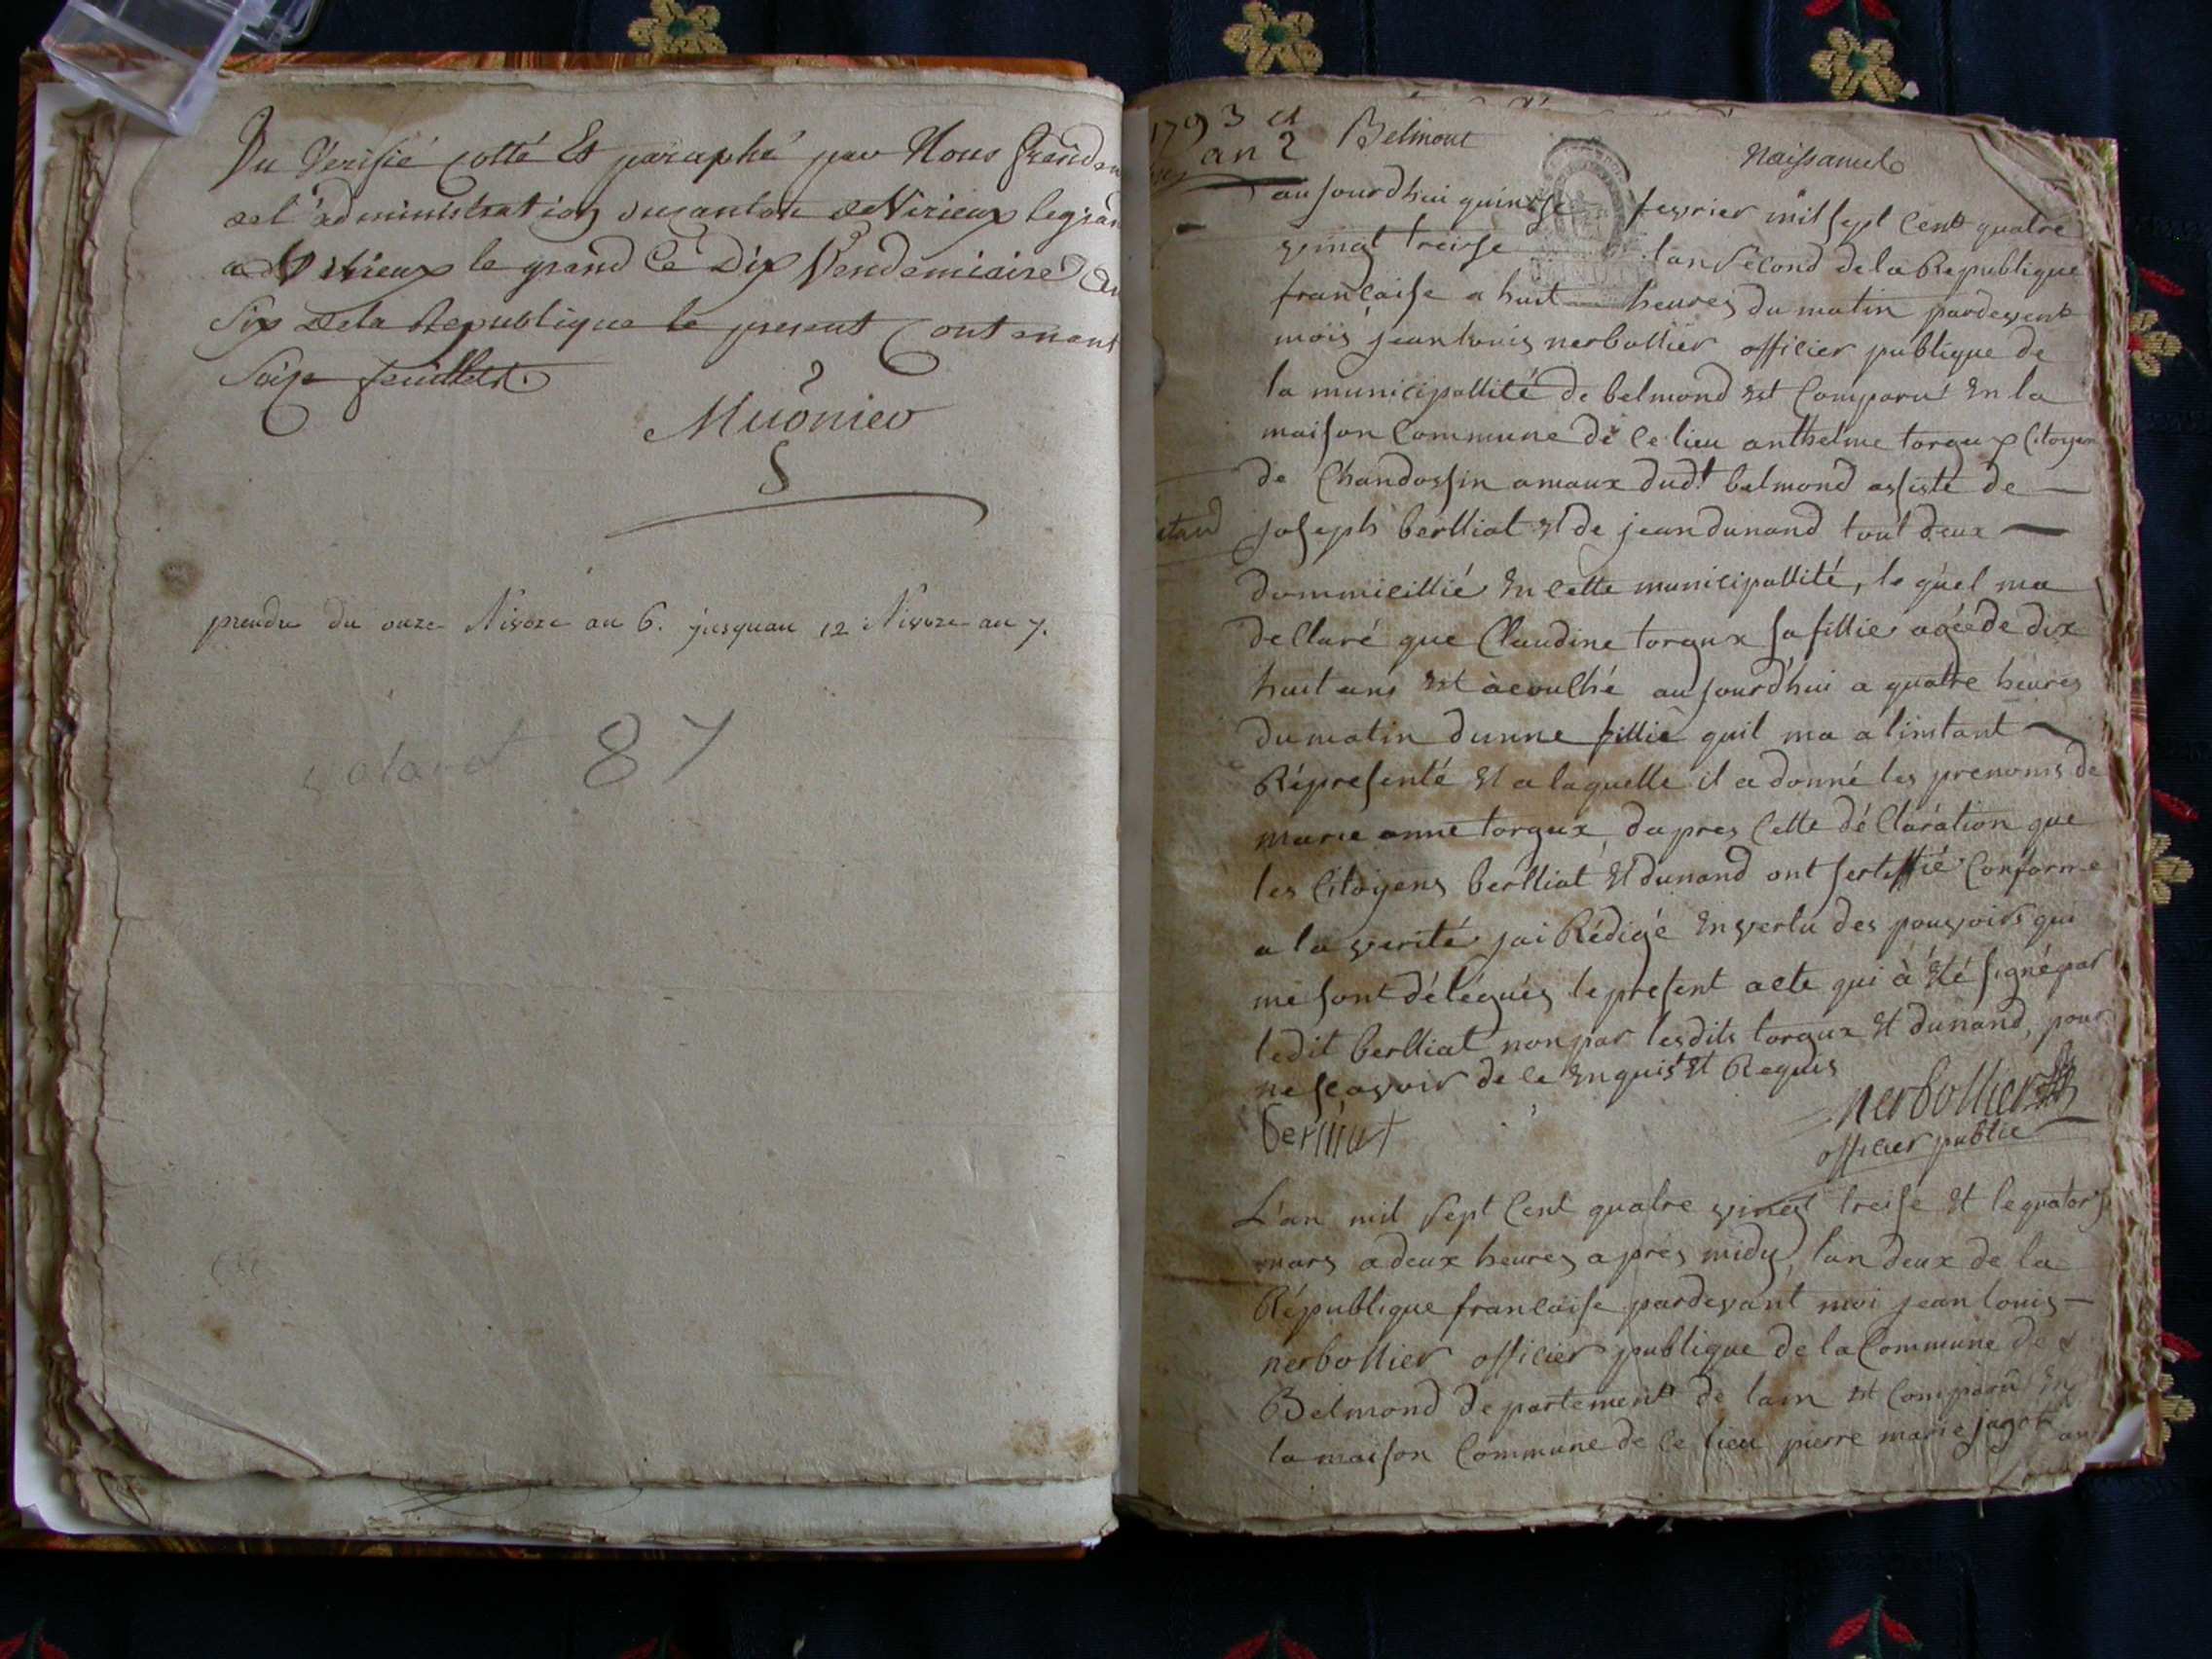 Vu Verifié cotté Et paraphé par Nous Présiden
de l'administration du canton de Virieux legran
a Virieux le grand Ce Dix Vendemiaire an
Six de la Republique le present Contenant
Seize feuillets.
Mugnier
prendu du onze Nivoze an 6. jusquau 12 Nivoze an 7.
87
1793 et
an 2
Belmont
Naissances
aujourdhui quinze fesvrier mil sept Cent quatre
vingt treise lan second de la Republique
française a huit heures du matin pardevent
mois jean louis nerbollier officier publique de
la municipallité de belmond est Comparu En la
maison Commune de Ce lieu anthelme torgux Citoyen
de Chandossin amaux dud.t belmond assisté de
joseph berlliat et de jean dunand tout deux
dommicillié En Cette municipallité, le quel ma
declaré que Claudine torgux sa fillie agée de dix
huit ans Est acouchée aujourd'hui a quatre heures
du matin dunne fillie quil ma a linstant
Répresenté et a laquelle il a donné les prenoms de
marie anne torgux, dapres Cette déClaration que
les Citoyens berlliat et dunand ont sertiffié Conforme
a la verité jai Rédigé En vertu des pouvoirs qui
me sont délégués le present acte qui à Eté signé par
ledit berlliat non par lesdits torgux et dunand, pour
ne sçavoir de ce Enquis et Requis
berliat
nerbollier
officier public
L'an mil sept Cent quatre vingt treise et le quatorse
mars a deux heures après midy, lan deux de la
République francaise pardevant moi jean louis
nerbollier officier publique de la Commune de
Belmond departement de lain est Comparu En
la maison Commune de Ce lieu pierre marie jagot